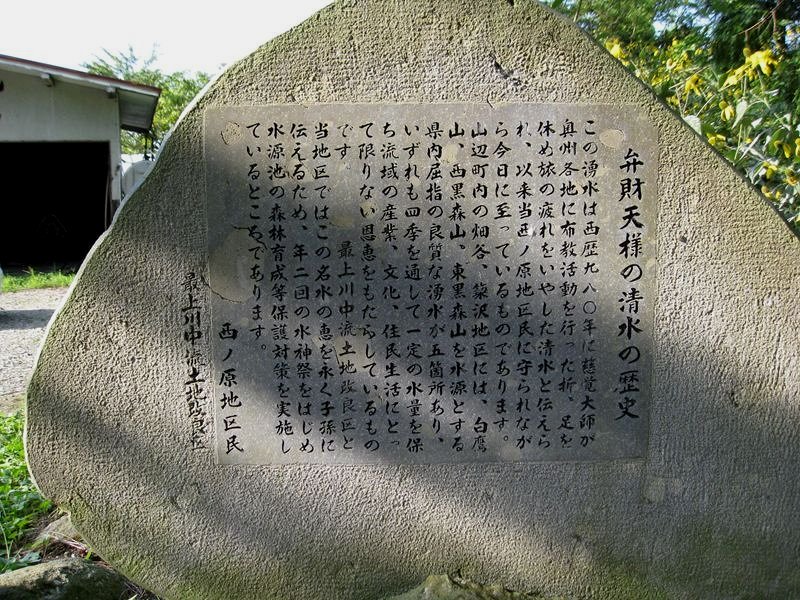 弁財天様の清水の歴史
この湧水は西歴九八〇年に慈覚大師が
奥州各地に布教活動を行った折、足を
休め旅の疲れをいやした清水と伝えら
れ、以来当西ノ原地区民に守られなが
ら今日に至っているものであります。
山辺町内の畑谷、簗沢地区には、白鷹
山、西黒森山、東黒森山を水源とする
県内屈指の良質な湧水が五箇所あり、
いずれも四季を通して一定の水量を保
ち流域の産業、文化、住民生活にとっ
て限りない恩恵をもたらしているもの
です。　最上川中流土地改良区と
当地区ではこの名水の恵を永く子孫に
伝えるため、年二回の水神祭をはじめ
水源池の森林育成等保護対策を実施し
ているところであります。
西ノ原地区民
最上川中流土地改良区